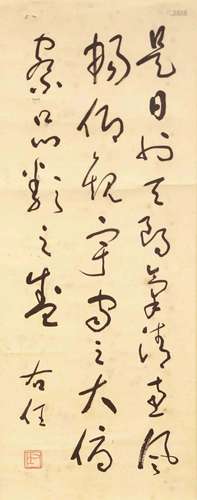 是日也天朗氣清惠風
暢仰觀宇宙之大俯
察品類之盛
右任